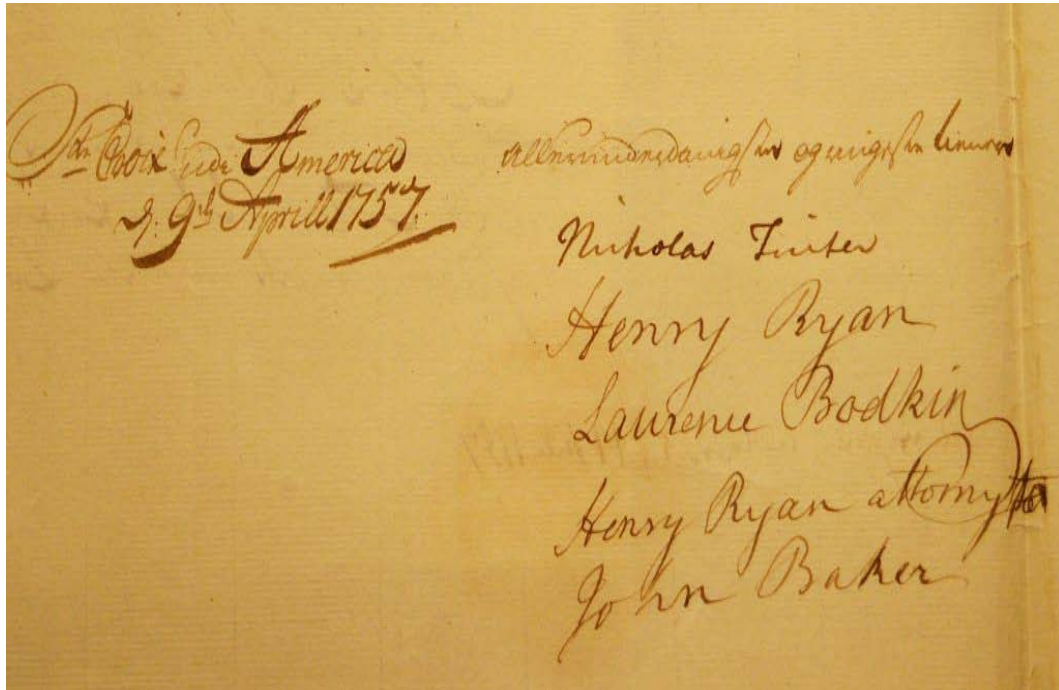 Ste Croix udi America
d. 9th Aprill 1757.
allerunderdanigste og ringeste tienere
Nicholas Tuiter
Henry Ryan
Laurence Bodkin
Henry Ryan attorny to
John Baker